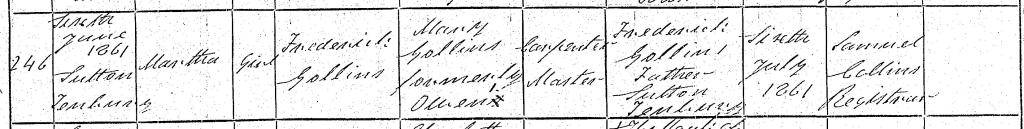 246
Sixth
June
1861
Sutton
Tenbury
Martha
Girl
Frederick
Gollins
Mary
Gollins
formerly
Owen
Carpenter
Master
Frederick
Gollins
Father
Sutton
Tenbury
Sixth
July
1861
Samuel
Collins
Registrar